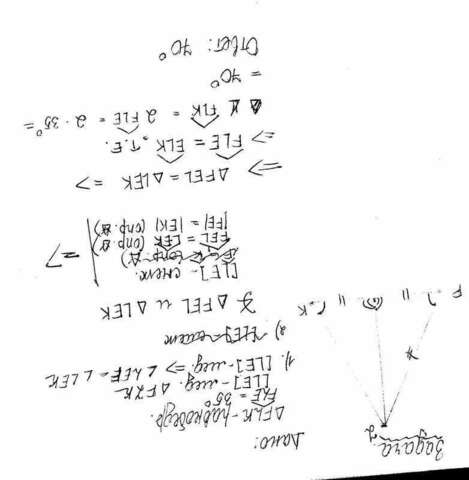 Задача
Дано:
△FLK - равнобедр.
FLE = 35°
[LE] - мед. △FLK
1). [LE] - мед. => ∠LEF = ∠LEK
2) [LE] - общая
△FEL и △LEK
[LE] - смеж.
FEL = LEK (опр. △)
|FE| = |EK| (опр. △)
=>
=> △FEL = △LEK =>
=> FLE = ELK, т.е.
FLK = 2 FLE = 2 · 35° =
= 70°
Ответ: 70°
L
F
K